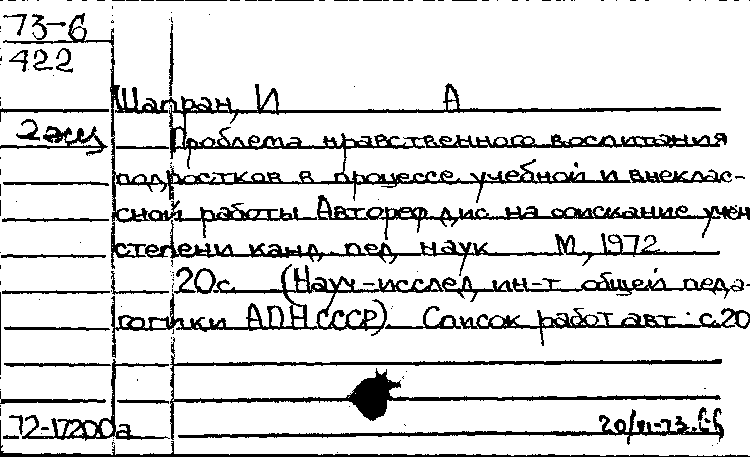 73-6
422
Шапран, И А
2 экз
Проблема нравственного воспитания
подростков в процессе учебной и внеклас-
сной работы Автореф дис на соискание учен
степени канд пед наук М, 1972
20с (Науч-исслед ин-т общей педа-
гогики АПН СССР) Список работ авт: с.20
72-17200а